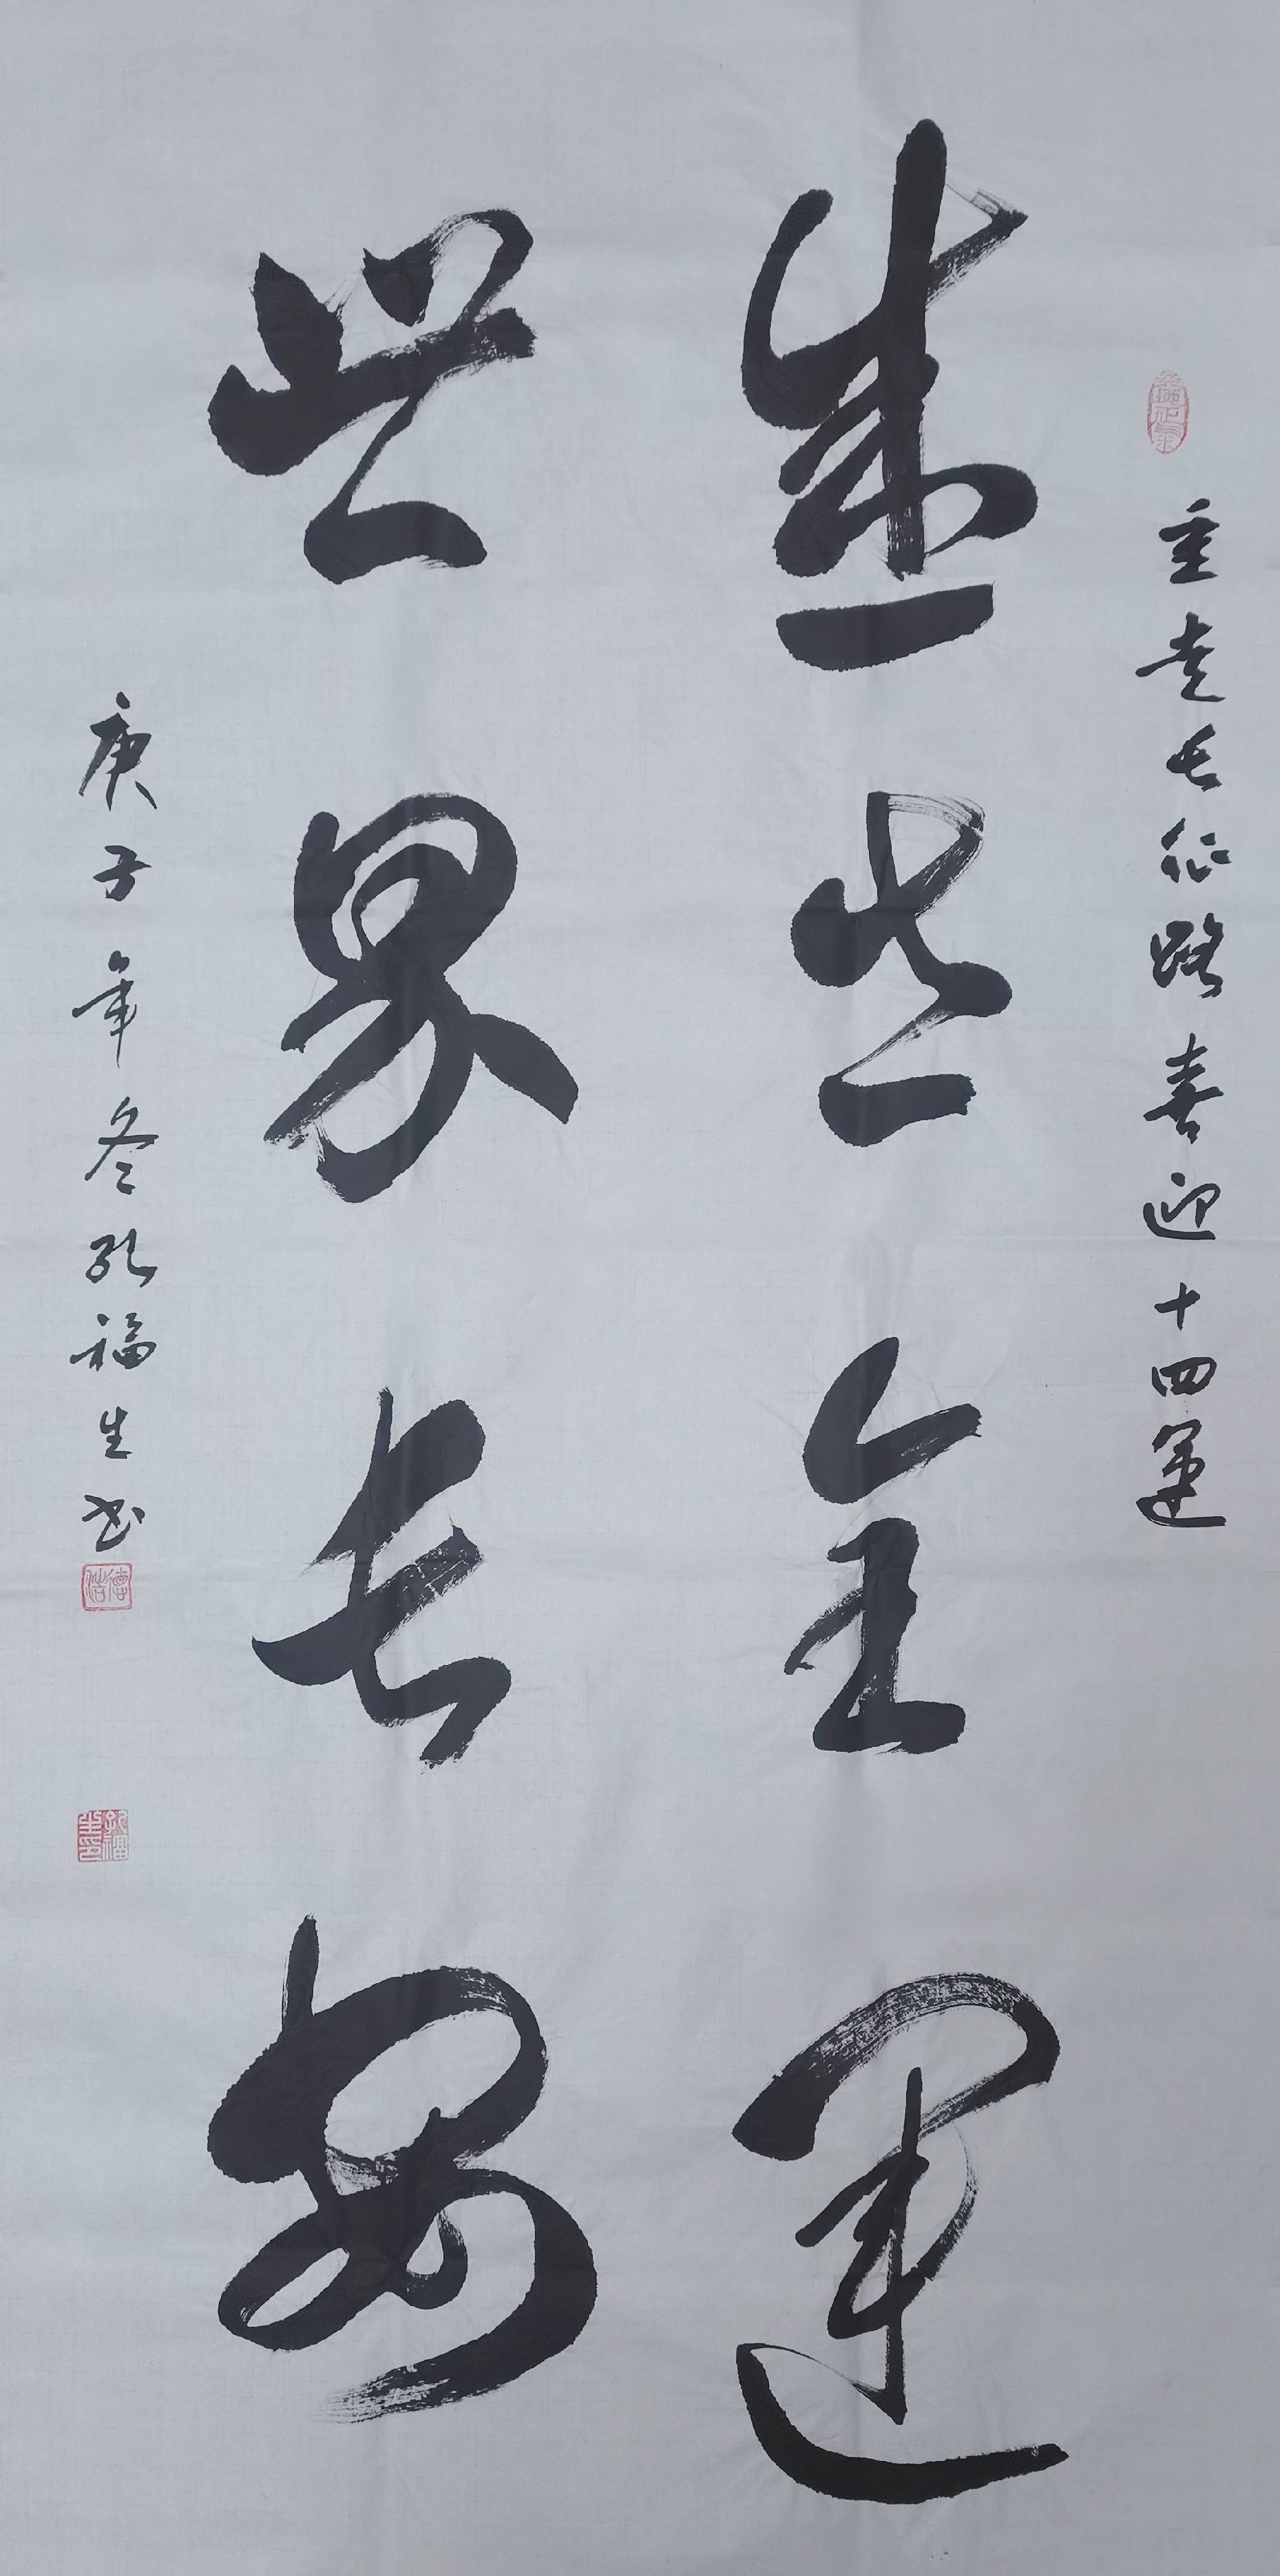 重走长征路喜迎十四运
盛世全运
世界长安
庚子年冬孔福生书